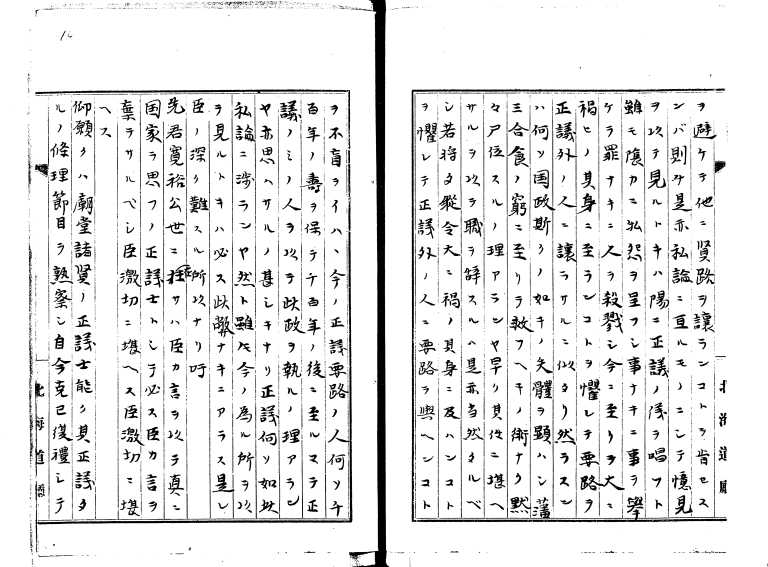 ヲ避ケテ他ニ賢路ヲ讓ランコトヲ肯セス
ンバ則チ是亦私論ニ亘ルモノニシテ憶見
ヲ以テ見ルトキハ陽ニ正議ノ儀ヲ唱フト
雖モ陰カニ私怨ヲ呈フシ事ナキニ事ヲ擧
ケテ罪ナキニ人ヲ殺戮シ今ニ至リヲ大ニ
禍ヒノ其身ニ至ランコトヲ懼レテ要路ヲ
正議外ノ人ニ讓ラサルニ似タリ然ラスン
ハ何ソ国政斯クノ如キノ失體ヲ顕ハシ藩
三合食ノ窮ニ至リテ救フヘキノ術ナク黙
々尸位スルノ理アランヤ早ク其任ニ堪ヘ
サルヲ以テ職ヲ辞スルハ是亦当然タルベ
シ若將タ縱令大ニ禍ノ其身ニ及ハンコト
ヲ懼レテ正議外ノ人ニ要路ヲ與ヘンコト
北海道廳
ヲ不肯ヲイハヽ今ノ正議要路ノ人何ソ千
百年ノ壽ヲ保テ千百年ノ後ニ至ルマテ正
議ノミノ人ヲ以テ此政ヲ執ルノ理アラン
ヤ亦思ハサルノ甚シキナリ正議何ソ如此
私論ニ渉ランヤ然ト雖モ今ノ為ル所ヲ以
ヲ見ルトキハ必ス此弊ナキニアラス是レ
臣ノ深ク難スル所以ナリ吁
先君寛裕公世ニ在サハ臣カ言ヲ以テ真ニ
国家ヲ思フノ正議士トシテ必ス臣カ言ヲ
棄ラサルベシ臣激切ニ堪ヘス臣激切ニ堪
ヘス
仰願クハ廟堂諸賢ノ正議士能ク其正議タ
ルノ條理節目ヲ熟察シ自今克己復禮シテ
北海道廳